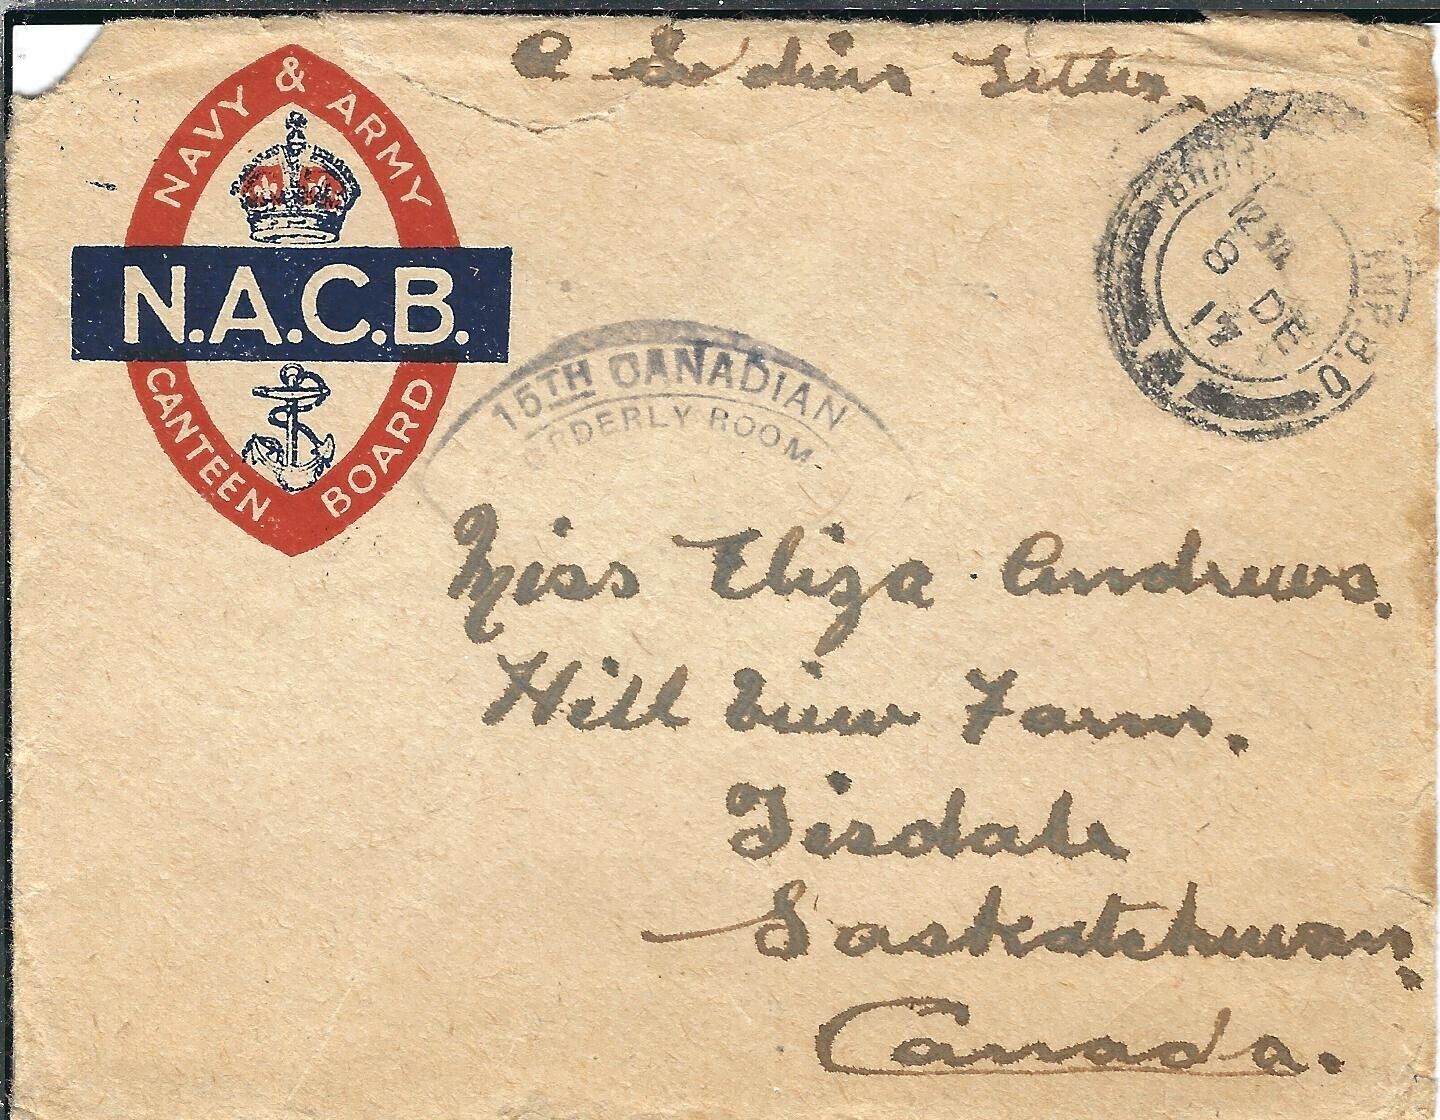 A Soldiers Letter.
NAVY & ARMY
N.A.C.B.
CANTEEN BOARD
15TH CANADIAN
ORDERLY ROOM.
8 DE
17
Miss Eliza Andrews.
Hill View Farm.
Tisdale
Saskatchewan.
Canada.